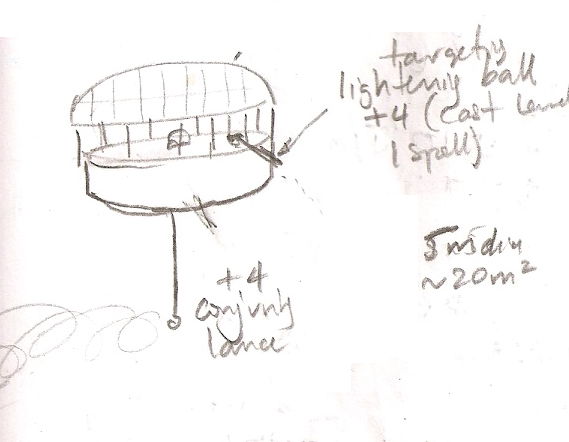 targetin
lightening ball
+4 (cast level
1 spell)
5m diam
~20m²
+4
conjuring
lance